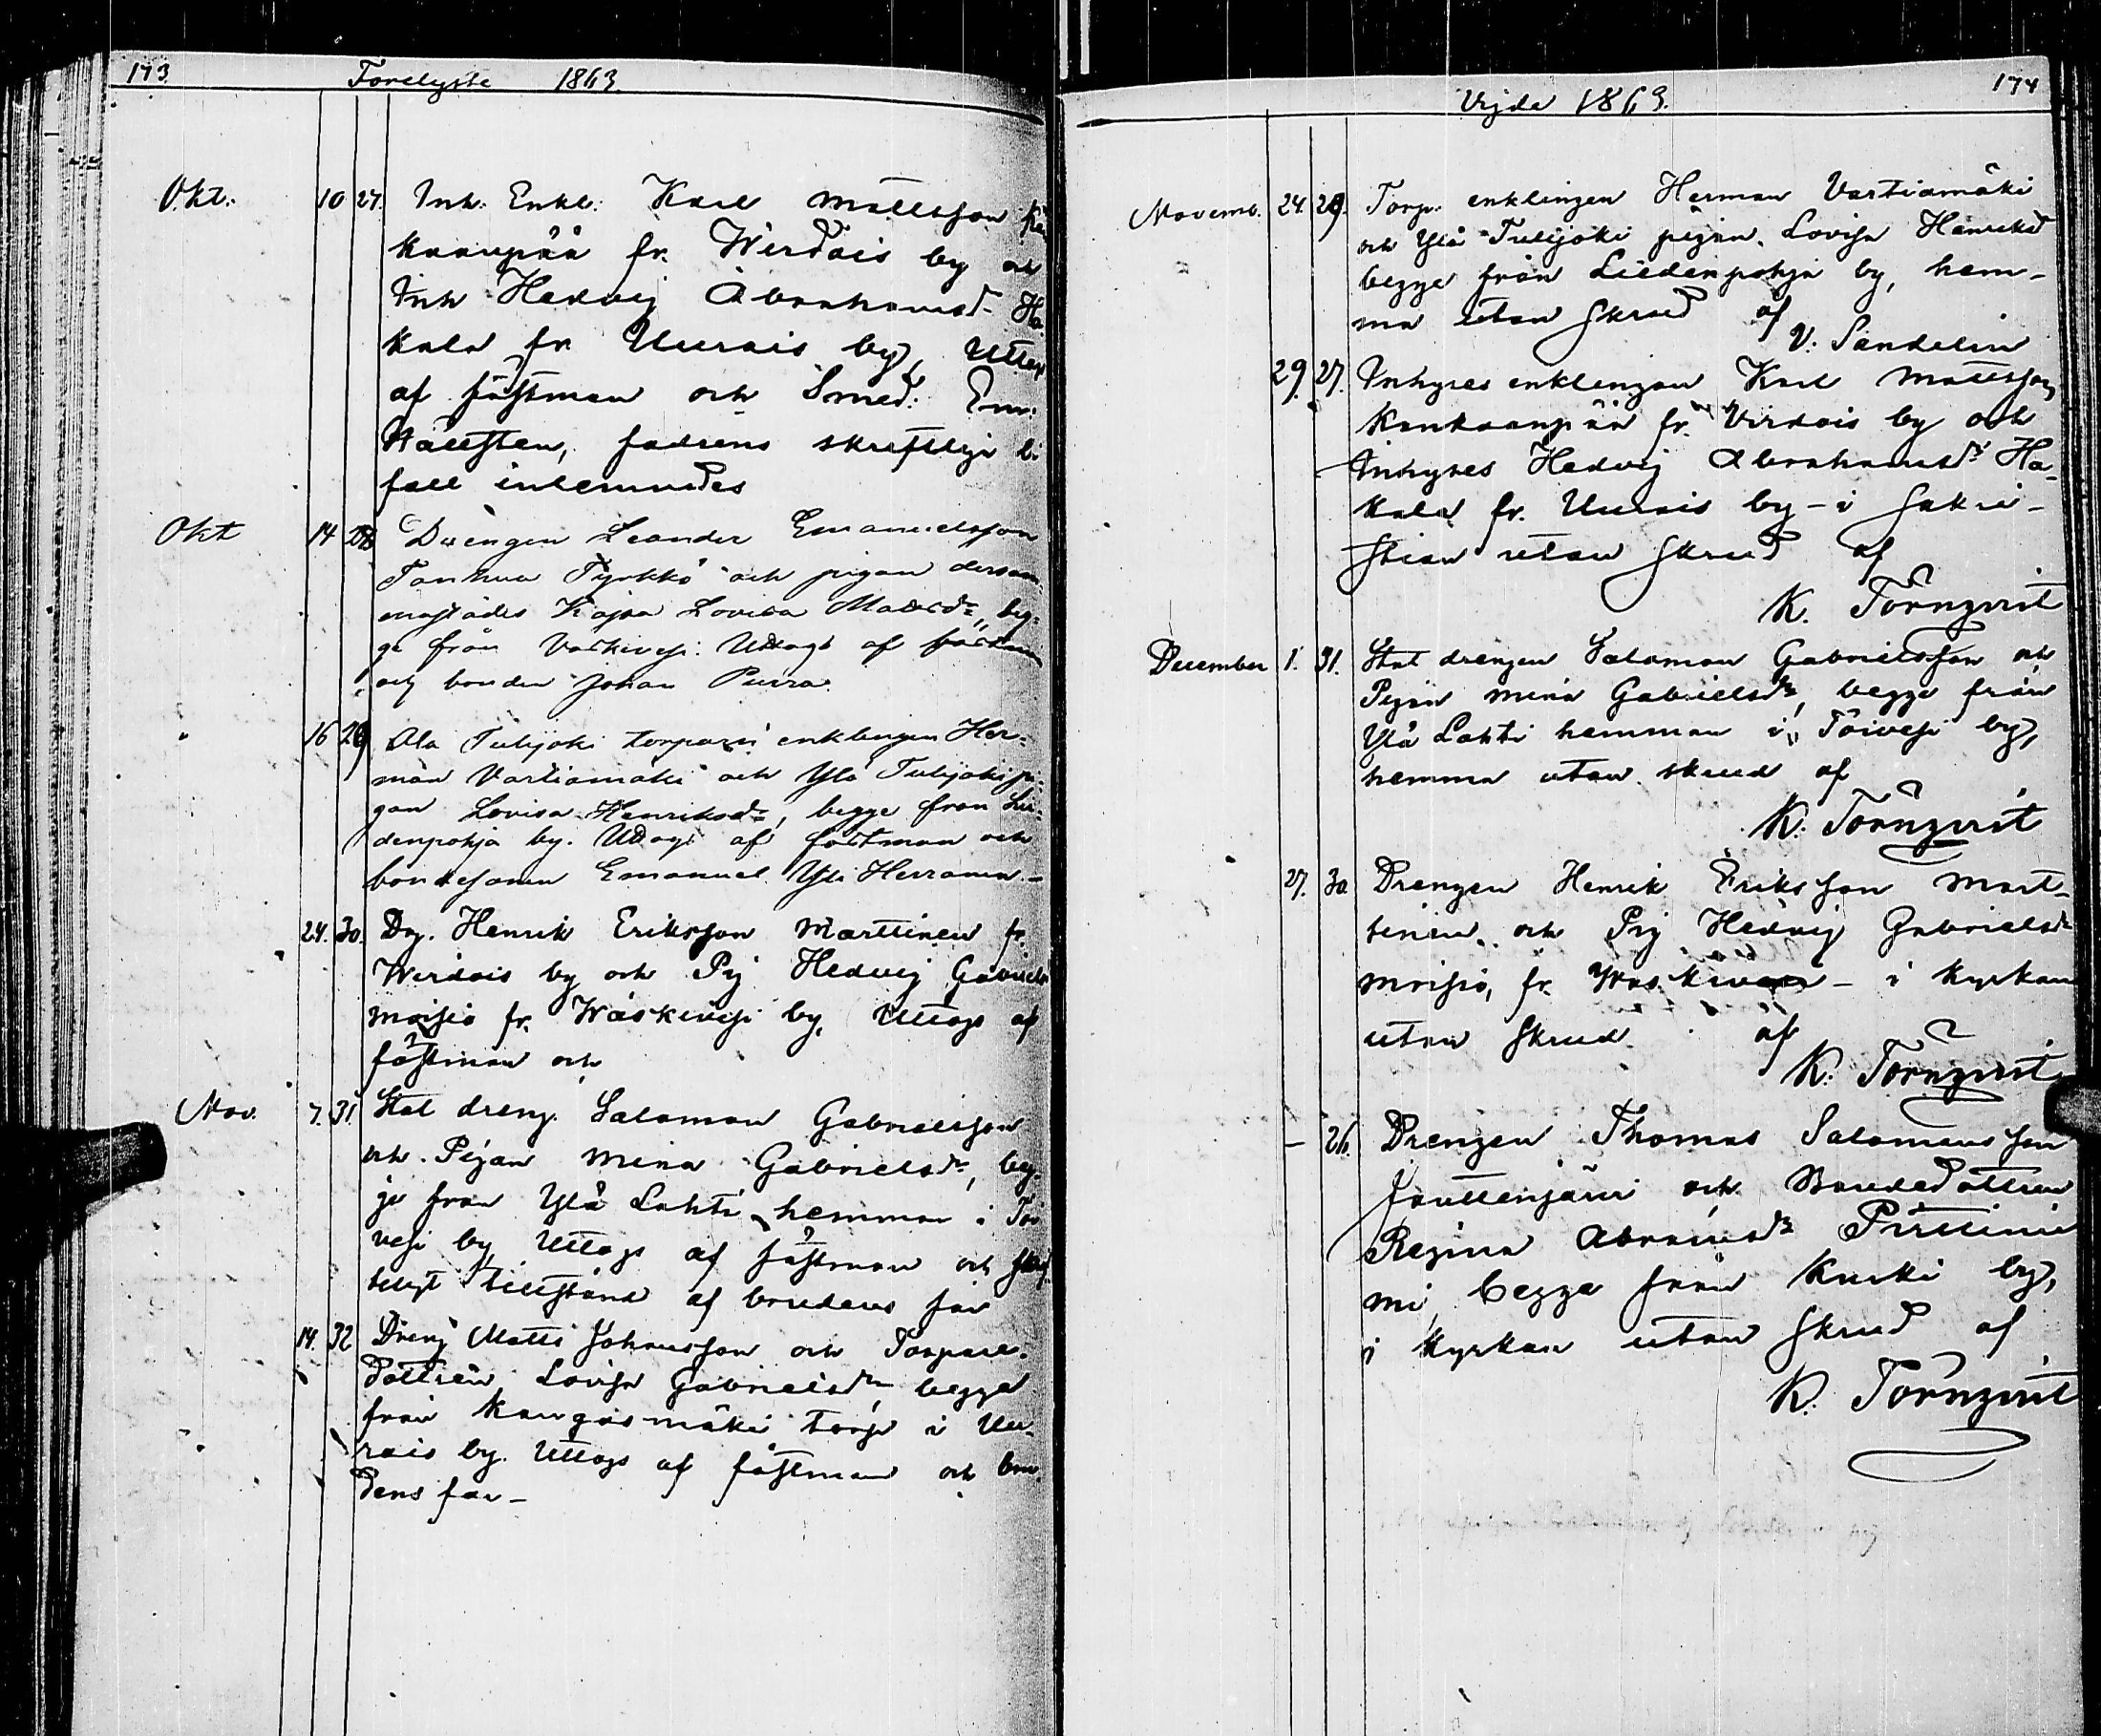 173. Förelyste 1863.
Okt. 10 27. Inh. Enkl: Karl Mattsson Kan
kaanpää fr. Werdois by och
Inh Hedvig Abrahamsd. Ha
kala fr. Uurais by, Uttogs
af fästman och Smed: Em.
Wallsten, fadrens skriftliga bi
fall inlemnades
Okt 14 28 Drengen Leander Emanuelsson
Tanhua Tyrkkö och pigan dersam
mastädes Kajsa Lovisa Mattsdr, beg-
ge från Vaskivesi. Uttogs af fästman
och bonden Johan Purra.
16 29 Ala Tulijoki torpare enklingen Her-
man Vartiamäki och Ylä Tulijoki pi-
gan Lovisa Henriksdr, begge från Lie-
denpohja by. Uttogs af fästman och
bondesonen Emanuel Yli Herranen –
24. 30. Drg. Henrik Eriksson Marttinen fr.
Werdois by och Pig Hedvig Gabriels
Moisio fr. Waskivesi by, Uttogs af
fästman och
Nov. 7. 31. Stat dreng. Salomon Gabrielsson
och Pigan Mina Gabrielsdr, beg-
ge från Ylä Lahti hemman i Toi
vesi by Uttogs af fästman och skrif
teligt tillstånd af brudens far
14. 32 Dreng Matts Johansson och Torpare-
dottren Lovisa Gabrielsdr begge
från Kangasmäki torp i Uu-
rais by. Uttogs af fästman och bru
dens far –
Vigde 1863. 174
Novemb. 24. 29. Torp. enklingen Herman Vartiamäki
och Ylä Tulijoki pigan Lovisa Henriksd
begge från Liedenpohja by, hem-
ma utan skrud af
V. Sandelin
29. 27. Inhyses enklingen Karl Mattsson
Kankaanpää fr. Virdois by och
Inhyses Hedvig Abrahamsdr Ha-
kala fr. Uurais by – i Sakri-
stian utan skrud af
K. Törnqvist
December 1. 31. Stat drengen Salomon Gabrielsson och
Pigan Mina Gabrielsdr, begge från
Ylä Lahti hemman i Toivesi by,
hemma utan skrud af
K. Törnqvist
27. 30 Drengen Henrik Eriksson Mart-
tinen och Pig Hedvig Gabrielsdr
Moisio, fr. Waskivesi – i kyrkan
utan skrud. af
K. Törnqvist
– 26. Drengen Thomas Salomonsson
Jouttenjärvi och Bondedottren
Regina Abramsdr Pirttinie
mi, begge från Kurki by,
i kyrkan utan skrud af
K. Törnqvist